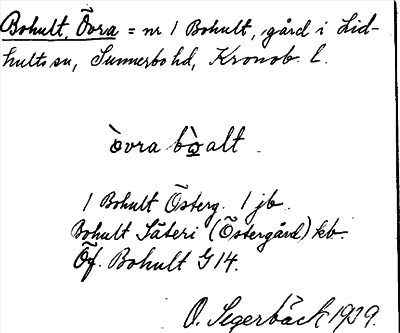 Bohult, Övra = nr 1 Bohult, gård i Lid-
hults sn, Sunnerbo hd, Kronob. l.
òvra bò̤alt.
1 Bohult Österg. 1 jb.
Bohult Säteri (Östergård) kb.
Öf. Bohult G 14.
O. Segerbäck 1929.